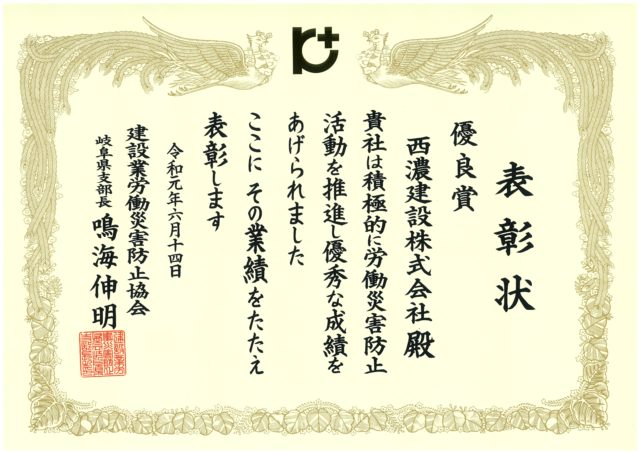 表彰状
優良賞
西濃建設株式会社殿
貴社は積極的に労働災害防止
活動を推進し優秀な成績を
あげられました
ここに その業績をたたえ
表彰します
令和元年六月十四日
建設業労働災害防止協会
岐阜県支部長 鳴海伸明